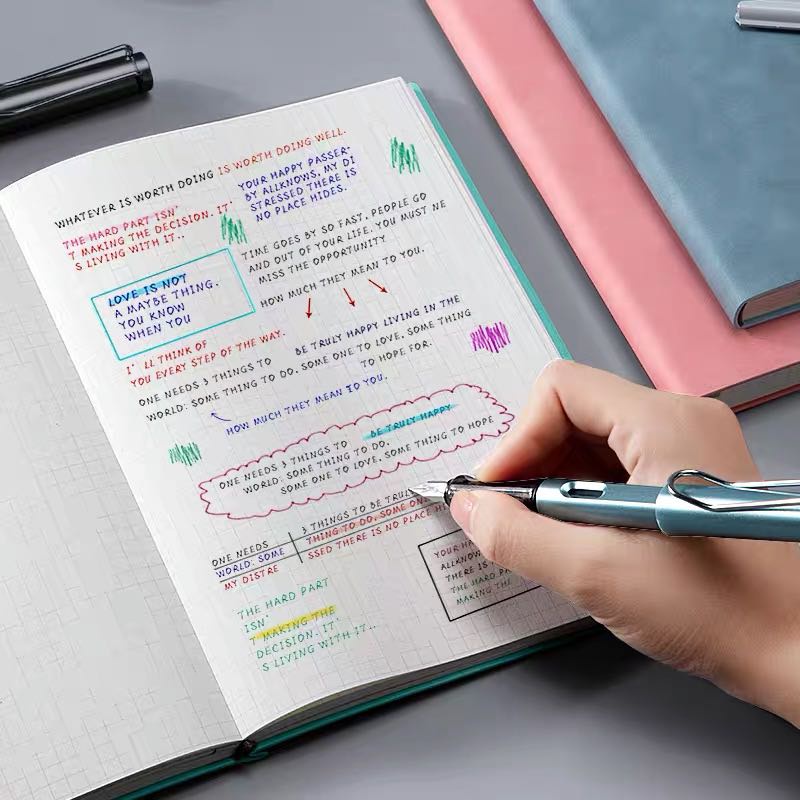 WHATEVER IS WORTH DOING IS WORTH DOING WELL.
THE HARD PART ISN'
T MAKING THE DECISION. IT'
S LIVING WITH IT..
YOUR HAPPY PASSER-
BY ALLKNOWS, MY DI
STRESSED THERE IS
NO PLACE HIDES.
TIME GOES BY SO FAST, PEOPLE GO
AND OUT OF YOUR LIFE. YOU MUST NE
MISS THE OPPORTUNITY
HOW MUCH THEY MEAN TO YOU.
LOVE IS NOT
A MAYBE THING.
YOU KNOW
WHEN YOU
I' LL THINK OF
YOU EVERY STEP OF THE WAY.
ONE NEEDS 3 THINGS TO BE TRULY HAPPY LIVING IN THE
WORLD: SOME THING TO DO. SOME ONE TO LOVE, SOME THING
TO HOPE FOR.
HOW MUCH THEY MEAN TO YOU.
ONE NEEDS 3 THINGS TO BE TRULY HAPPY
WORLD: SOME THING TO DO.
SOME ONE TO LOVE, SOME THING TO HOPE
ONE NEEDS 3 THINGS TO BE TRULY
WORLD: SOME THING TO DO, SOME ON
MY DISTRE SSED THERE IS NO PLACE HI
YOUR HA
ALLKNOW
THERE IS
THE HARD PA
MAKING THE
THE HARD PART
ISN'
T MAKING THE
DECISION. IT'
S LIVING WITH IT..